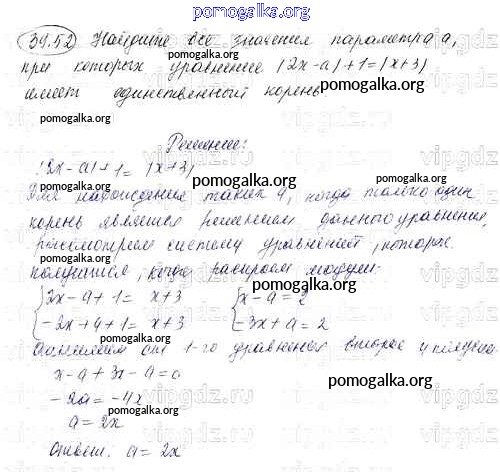 pomogalka.org
39.52 Найдите все значения параметра a,
при которых уравнение |2x-a|+1=|x+3|
pomogalka.org
имеет единственный корень
pomogalka.org
pomogalka.org
Решение:
|2x-a|+1=|x+3|
pomogalka.org
Для нахождения таких a, когда только один
корень является решением данного уравнения,
pomogalka.org
рассмотрим систему уравнений, которые
получились, когда раскроем модули:
pomogalka.org
{2x-a+1=x+3 {x-a=2
pomogalka.org
-2x+a+1=x+3 -3x+a=2
pomogalka.org
от 1-го уравнения второе и
x-a+3x-a=0
pomogalka.org
-2a=-4x
pomogalka.org
a=2x
Ответ: a=2x
pomogalka.org
vipgdz.ru